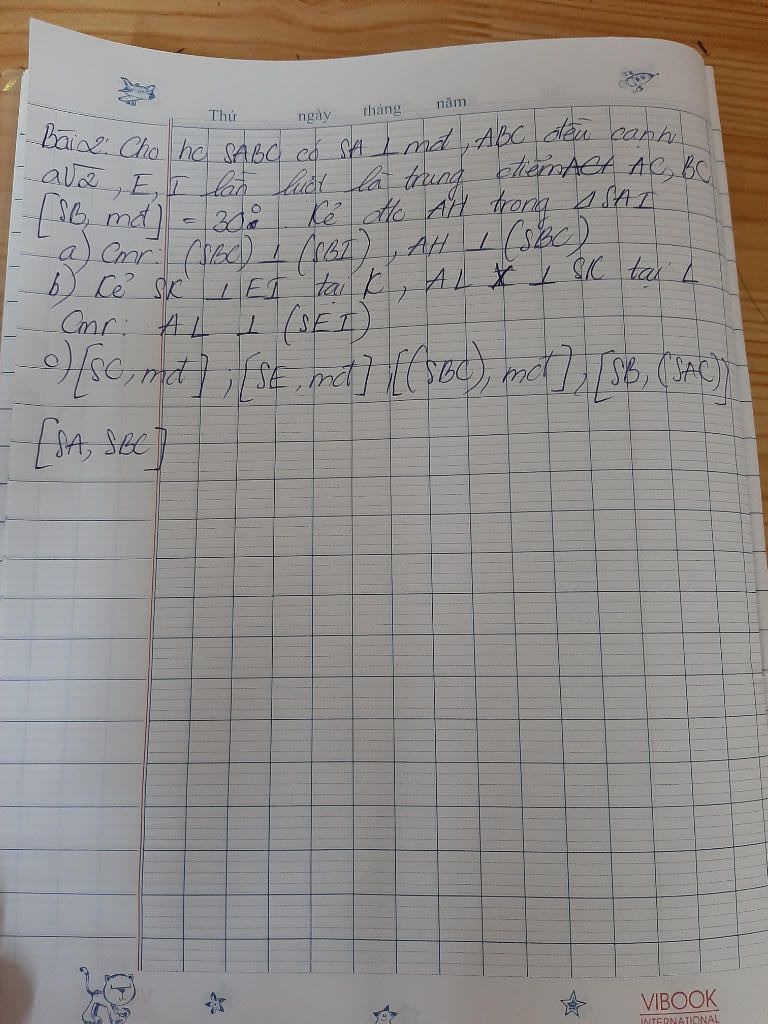 Thứ ngày tháng năm
Bài 2: Cho hc SABC có SA ⊥ mđ, ABC đều cạnh
a√2, E, I lần lượt là trung điểm AC, BC
[SB, mđ] = 30°. Kẻ đc AH trong △ SAI
a) Cmr: (SBC) ⊥ (SBI), AH ⊥ (SBC)
b) Kẻ SK ⊥ EI tại K, AL ⊥ SK tại L
Cmr: AL ⊥ (SEI)
c) [SC, mđ] ; [SE, mđ] ; [(SBC), mđ] ; [SB, (SAC)]
[SA, SBC]
VIBOOK
INTERNATIONAL